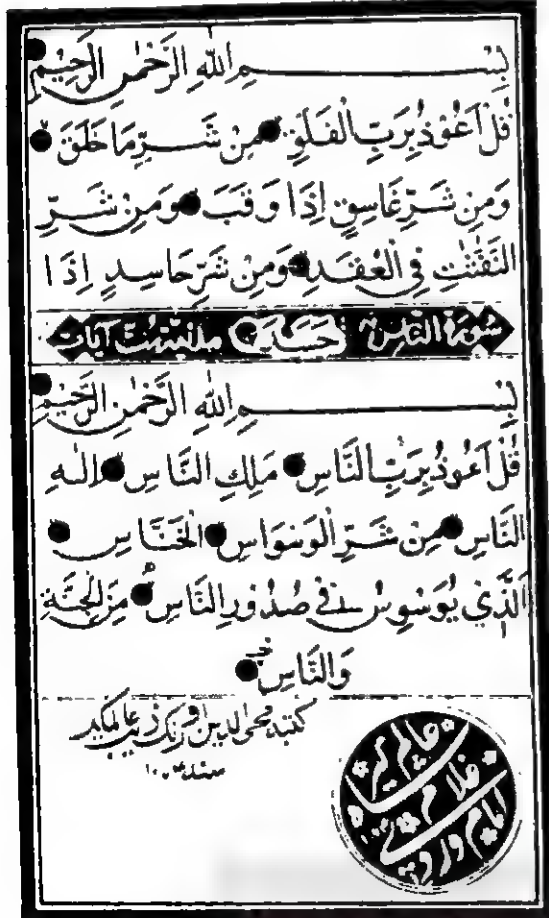 بِسْمِ اللهِ الرَّحْمٰنِ الرَّحِيْمِ
قُلْ اَعُوْذُ بِرَبِّ الْفَلَقِ مِنْ شَرِّ مَا خَلَقَ
وَمِنْ شَرِّ غَاسِقٍ اِذَا وَقَبَ وَمِنْ شَرِّ
النَّفّٰثٰتِ فِي الْعُقَدِ وَمِنْ شَرِّ حَاسِدٍ اِذَا
سُورَةُ النَّاسِ حَسَدَ آيَات
بِسْمِ اللهِ الرَّحْمٰنِ الرَّحِيْمِ
قُلْ اَعُوْذُ بِرَبِّ النَّاسِ مَلِكِ النَّاسِ اِلٰهِ
النَّاسِ مِنْ شَرِّ الْوَسْوَاسِ الْخَنَّاسِ
الَّذِيْ يُوَسْوِسُ فِيْ صُدُوْرِ النَّاسِ مِنَ الْجِنَّةِ
وَالنَّاسِ
كتبه محى الدين اورنگ زيب عالمگير